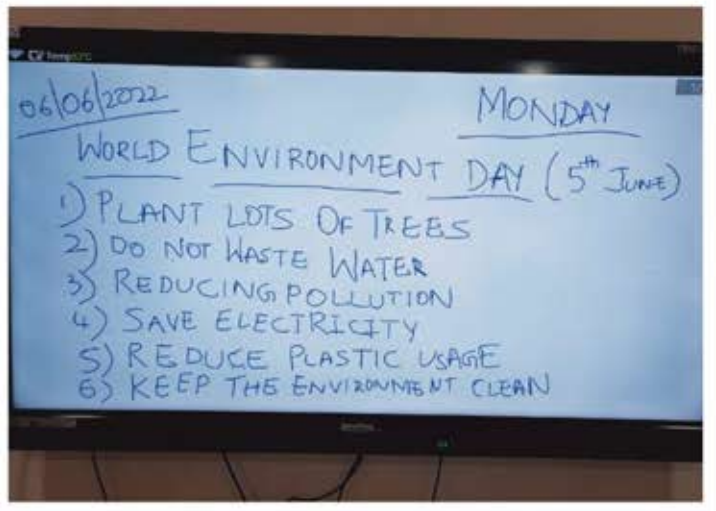 06/06/2022
MONDAY
WORLD ENVIRONMENT DAY (5th JUNE)
1) PLANT LOTS OF TREES
2) DO NOT WASTE WATER
3) REDUCING POLLUTION
4) SAVE ELECTRICITY
5) REDUCE PLASTIC USAGE
6) KEEP THE ENVIRONMENT CLEAN